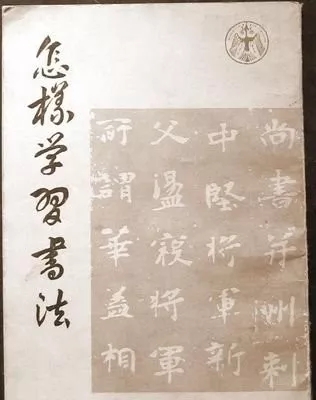 怎樣学習書法
尚書并州刺
中堅将軍新
父盪寇将軍
所謂華盖相